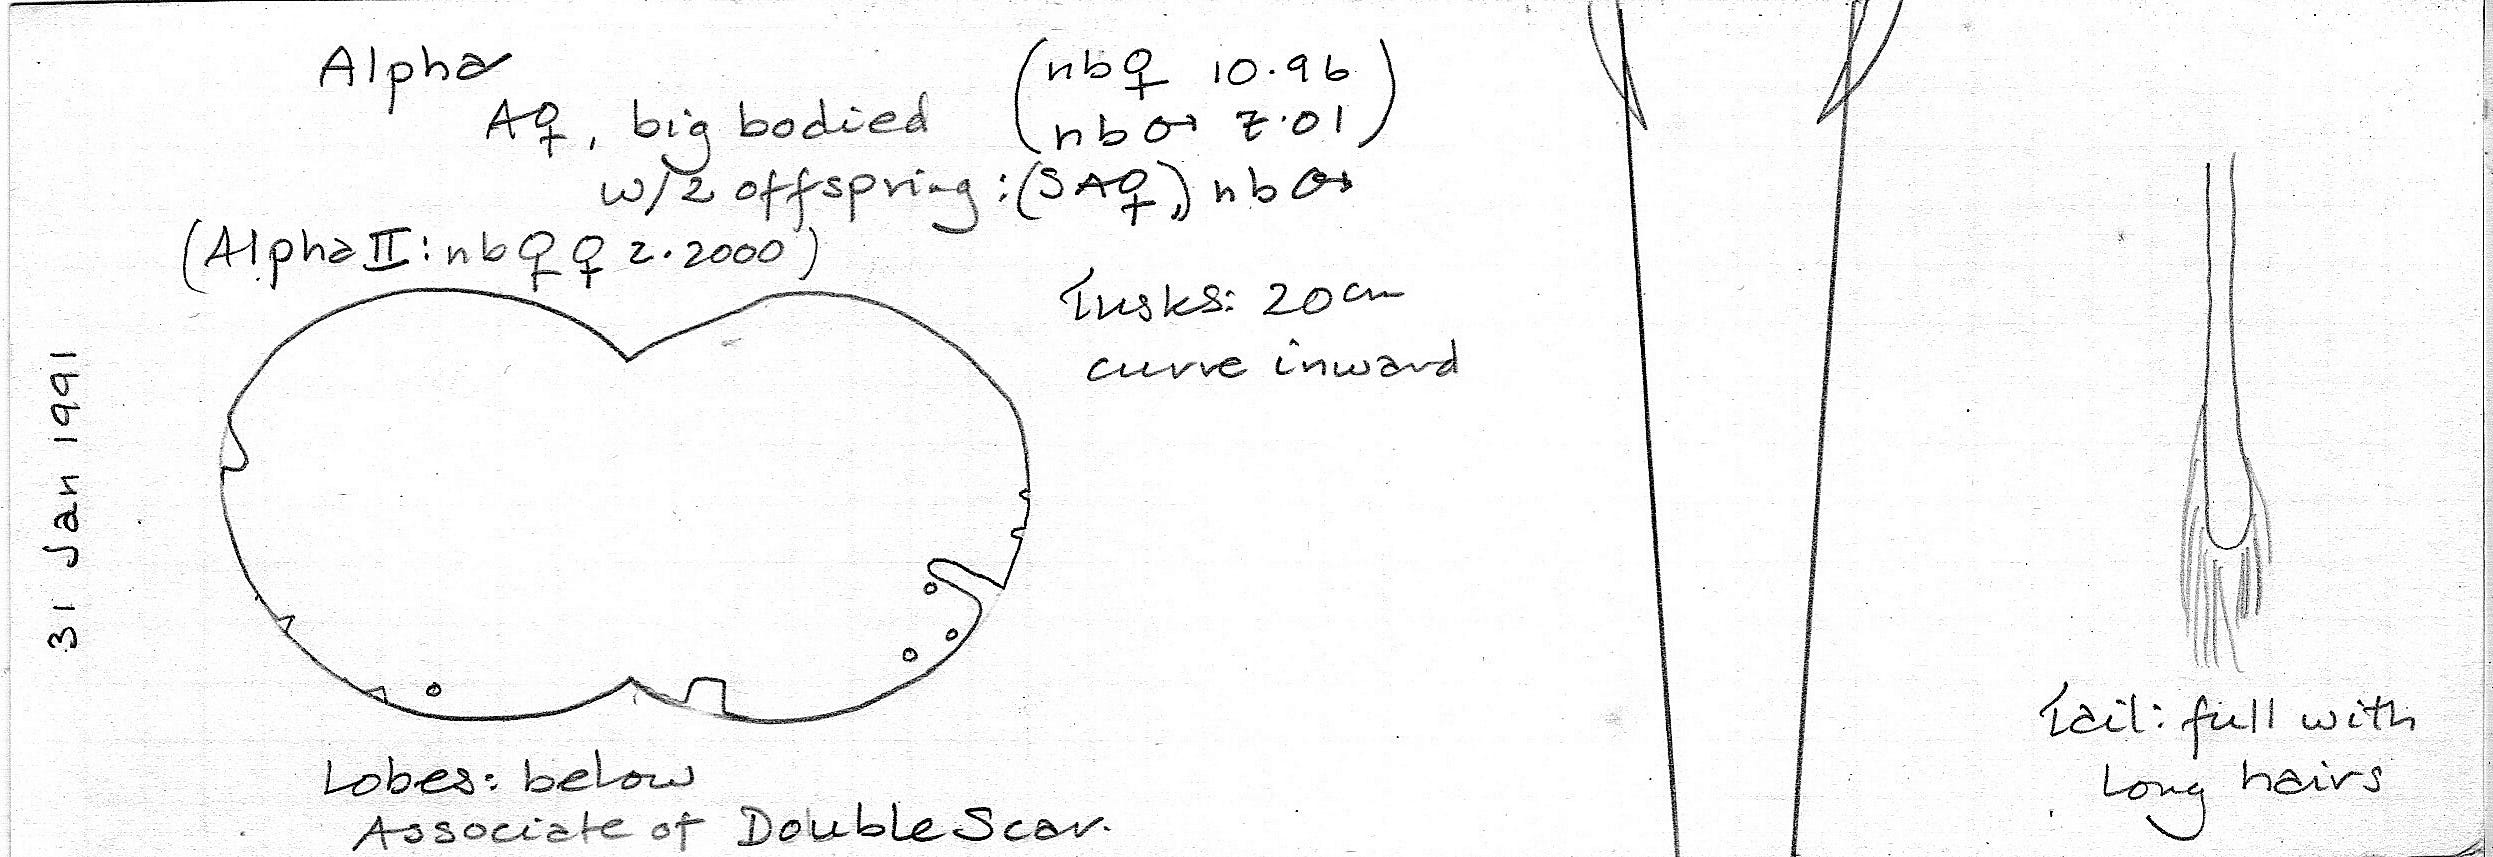 Alpha
A♀, big bodied
(nb♀ 10.96
nb♂ 7.01)
w/2 offspring: (SA♀,) nb♂
(Alpha II: nb♀♀ 2.2000)
Tusks: 20cm
curve inward
31 Jan 1991
Lobes: below
Associate of Double Scar.
Tail: full with
long hairs